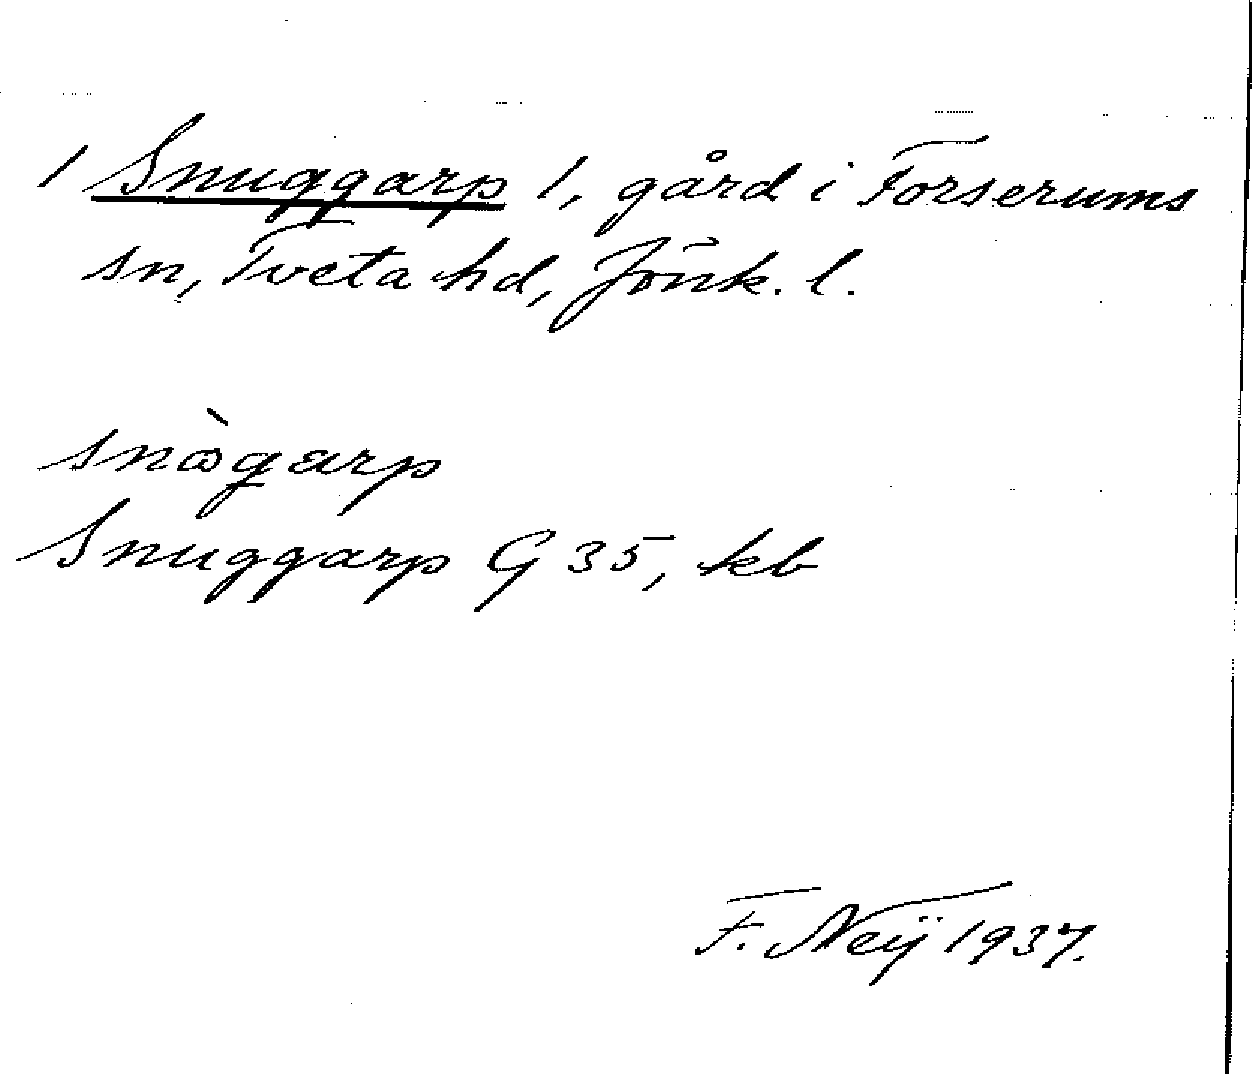 1 Snuggarp 1, gård i Forserums
sn, Tveta hd, Jönk. l.
snɷ̀garp
Snuggarp G 35, kb
F. Neÿ 1937.